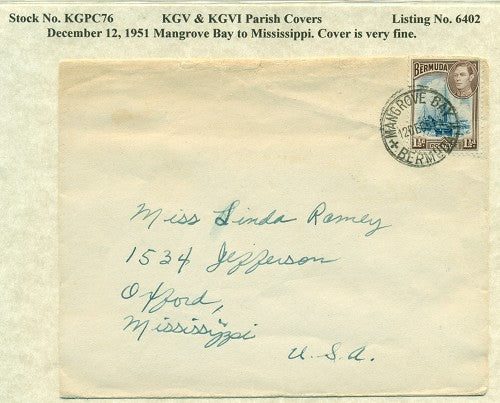 Stock No. KGPC76 KGV & KGVI Parish Covers Listing No. 6402
December 12, 1951 Mangrove Bay to Mississippi. Cover is very fine.
BERMUDA
MANGROVE BAY
BERMUDA
1½d
Miss Linda Ramey
1534 Jefferson
Oxford,
Mississippi
U.S.A.